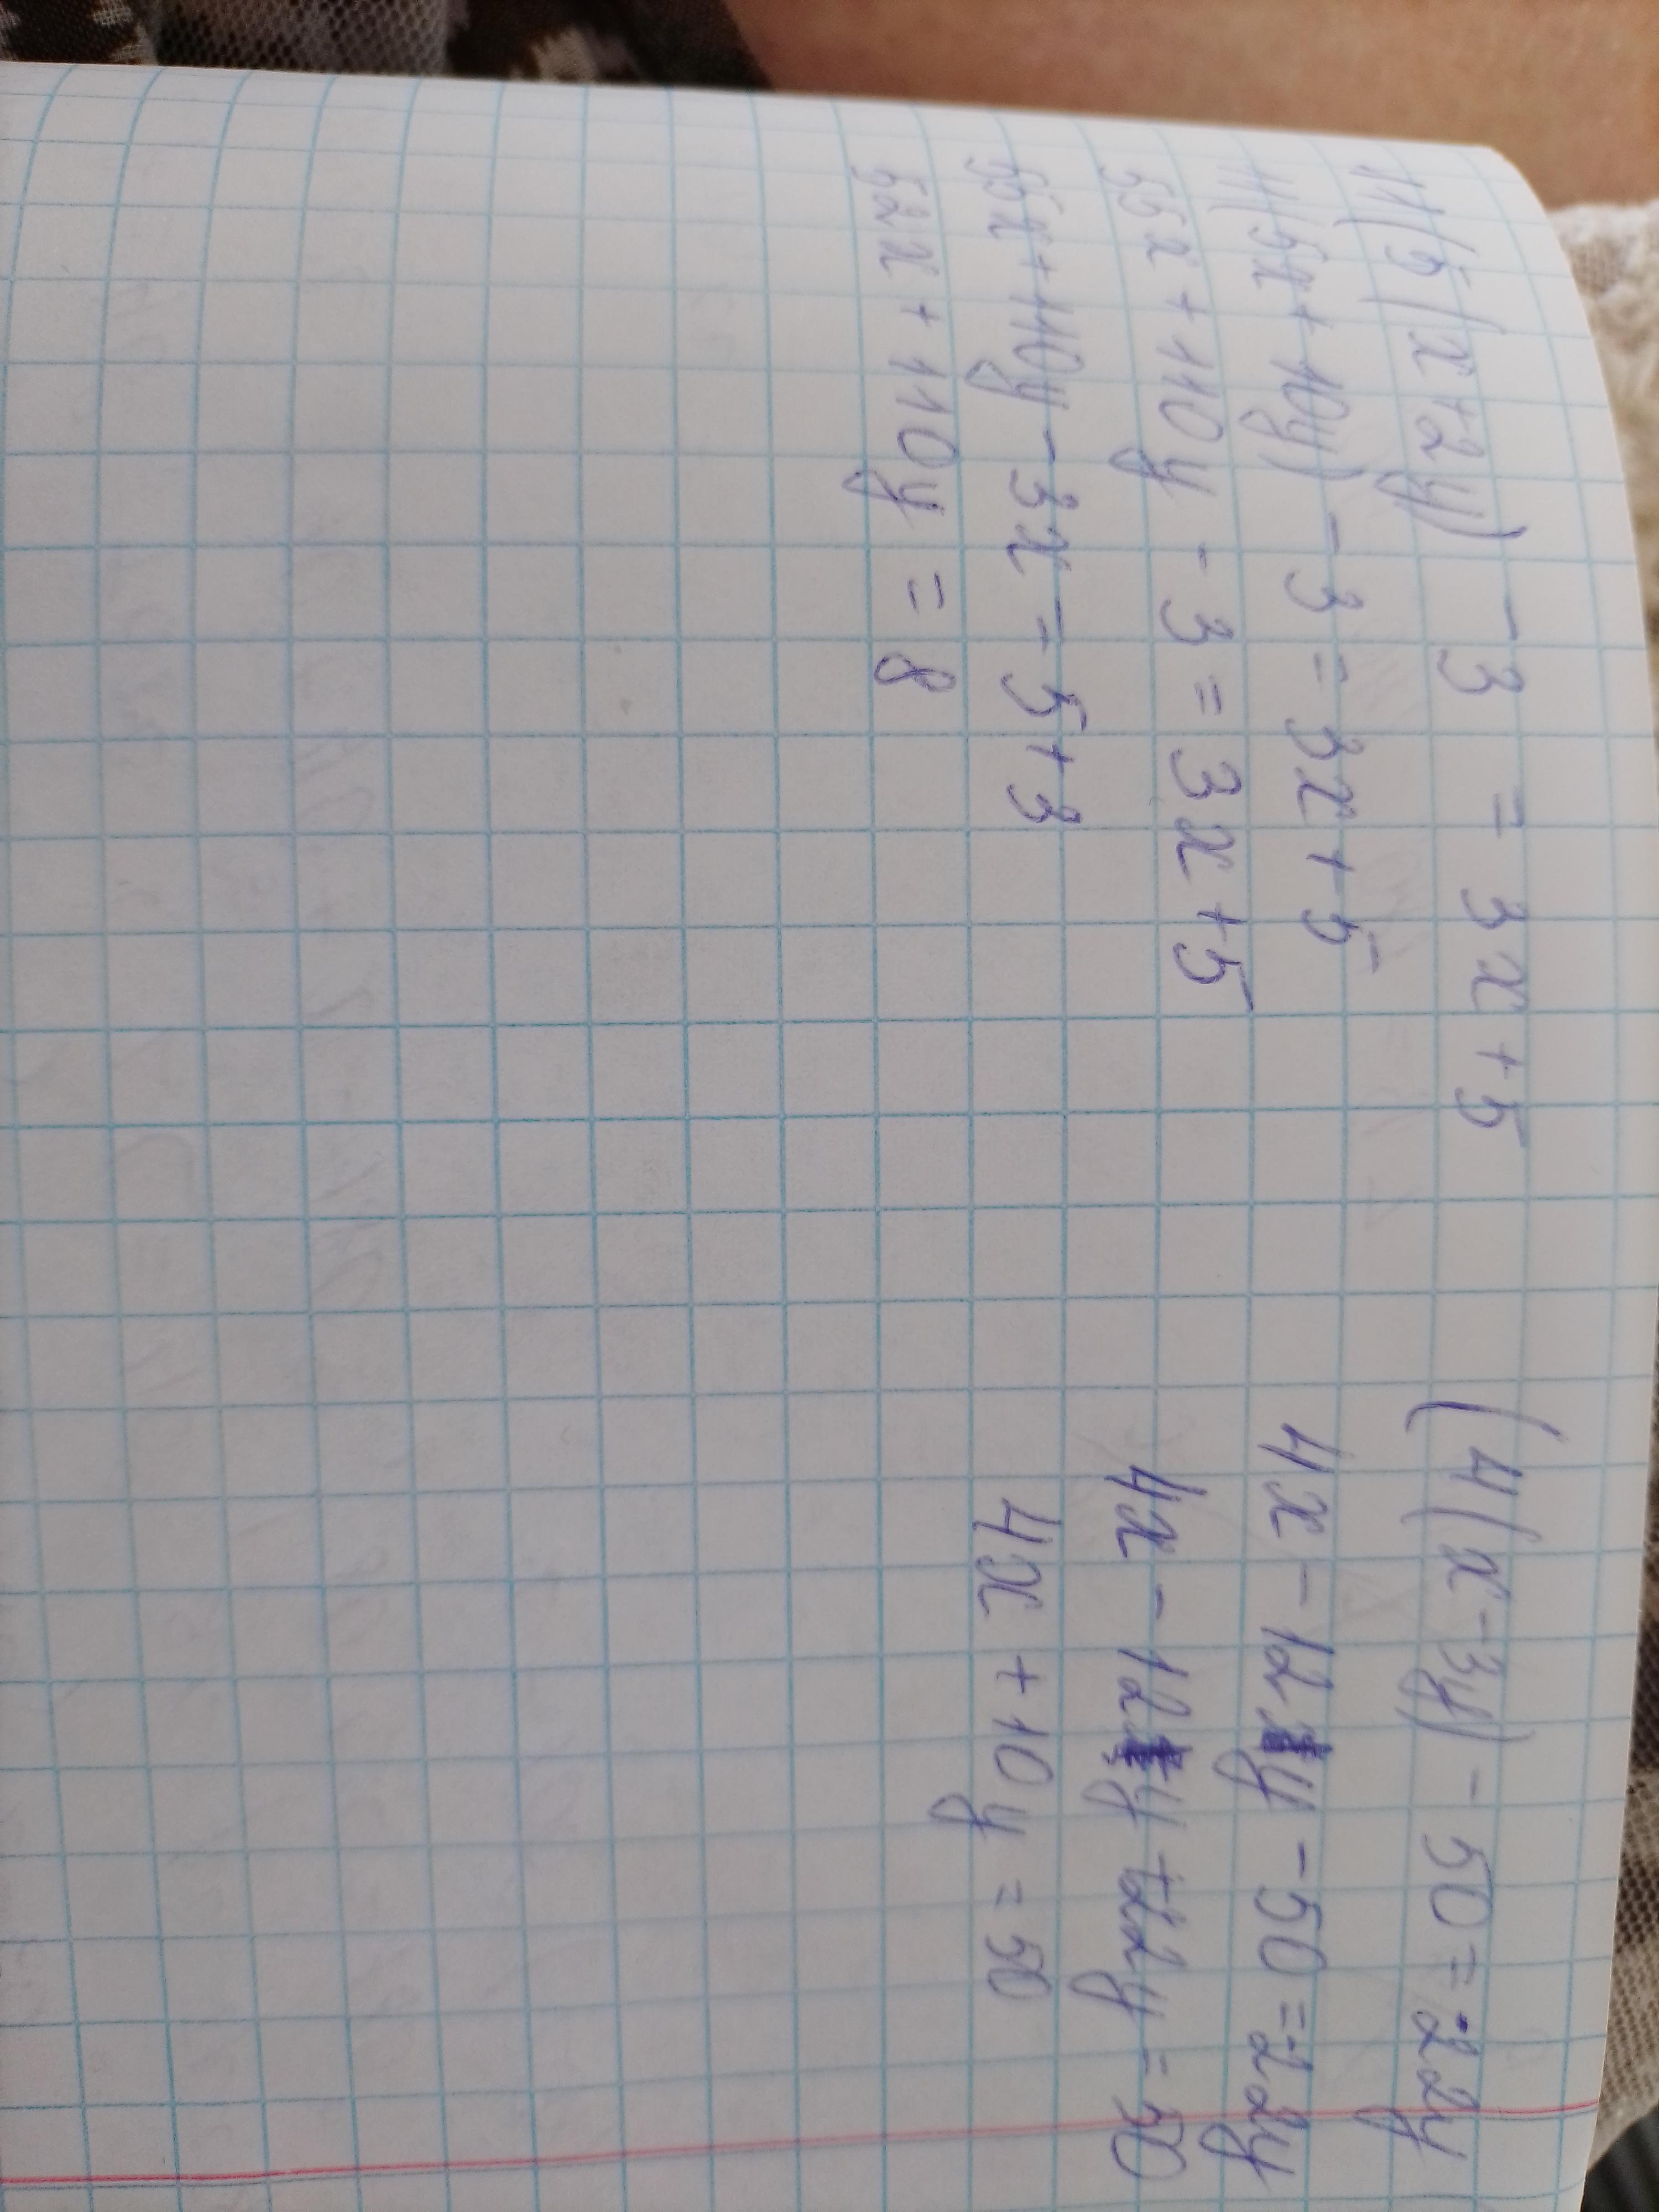 11(5(x+2y) - 3 = 3x + 5
11(5x + 10y) - 3 = 3x + 5
55x + 110y - 3 = 3x + 5
55x + 110y - 3x = 5 + 3
52x + 110y = 8
(4(x - 3y) - 50 = -22y
4x - 12y - 50 = -22y
4x - 12y + 22y = 50
4x + 10y = 50